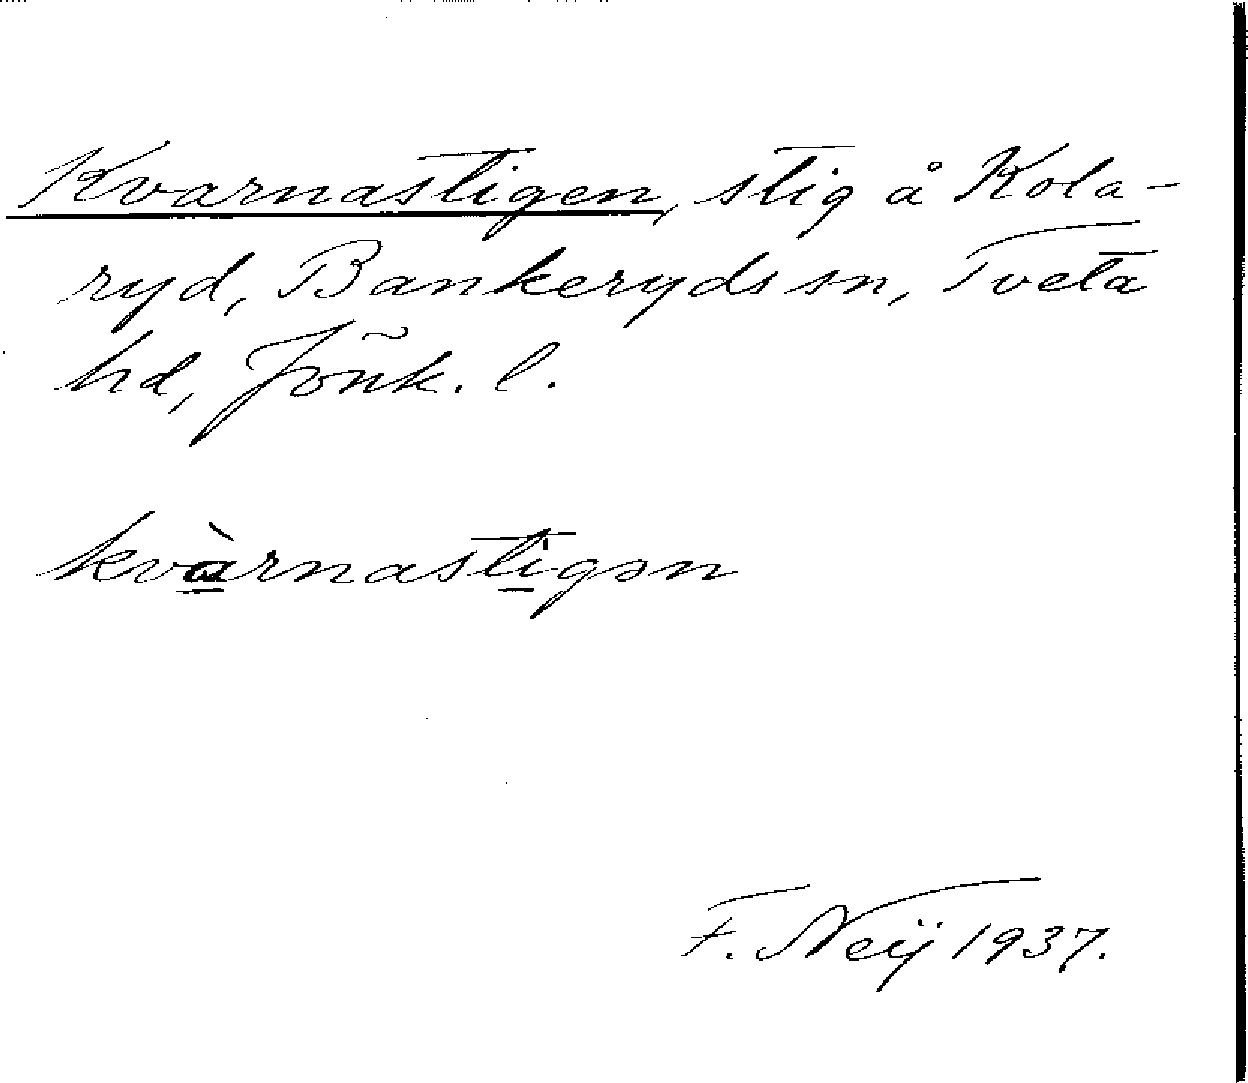 Kvarnastigen, stig å Kola-
ryd, Bankeryds sn, Tveta
hd, Jönk. l.
kvàrnastigən
F. Neij 1937.